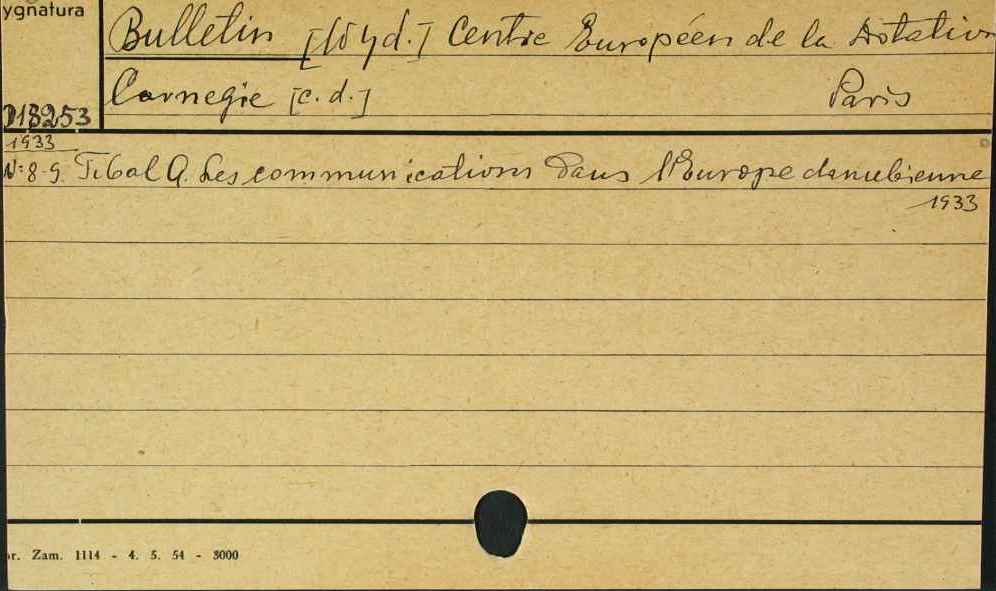 ygnatura
Bulletin [Wyd.] Centre Européen de la Dotation
Carnegie [c. d.] Paris
1933
N: 8-9. Tibal A. Les communications dans l'Europe danubienne
1933
r. Zam. 1114 - 4. 5. 54 - 3000